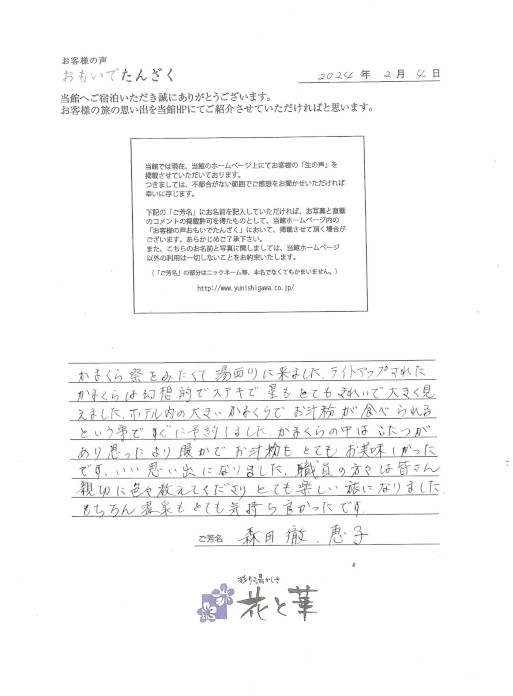 お客様の声
おもいでたんざく
2024 年 2 月 4 日
当館へご宿泊いただき誠にありがとうございます。
お客様の旅の思い出を当館HPにてご紹介させていただければと思います。
当館では現在、当館のホームページ上にてお客様の「生の声」を
掲載させていただいております。
つきましては、不都合がない範囲でご感想をお聞かせいただければ
幸いに存じます。
下記の「ご芳名」にお名前を記入していただければ、お写真と直筆
のコメントの掲載許可を得たものとして、当館ホームページ内の
「お客様の声おもいでたんざく」において、掲載させて頂く場合が
ございます。あらかじめご了承下さい。
また、こちらのお名前と写真に関しましては、当館ホームページ
以外の利用は一切しないことをお約束いたします。
（「ご芳名」の部分はニックネーム等、本名でなくてもかまいません。）
http://www.yunishigawa.co.jp/
かまくら祭をみたくて湯西川に来ました。ライトアップされた
かまくらは幻想的でステキで星もとてもきれいで大きく見
えました。ホテル内の大きいかまくらでお汁粉が食べられる
という事ですぐに予約しました。かまくらの中はこたつが
あり思ったより暖かでお汁粉もとてもお美味しかった
です。いい思い出になりました。職員の方々は皆さん
親切に色々教えてくださりとても楽しい旅になりました。
もちろん温泉もとても気持ち良かったです。
ご芳名 森田 徹、恵子
彩り湯かしき
花と華